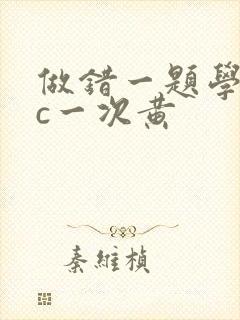 做錯一題學
c一次黄
秦維楨